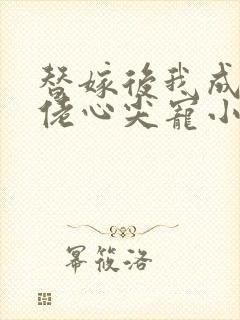 替嫁後我成
佬心尖寵小
幂筱洛